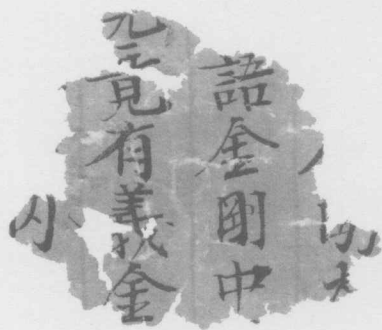 語金剛中
究竟有義金